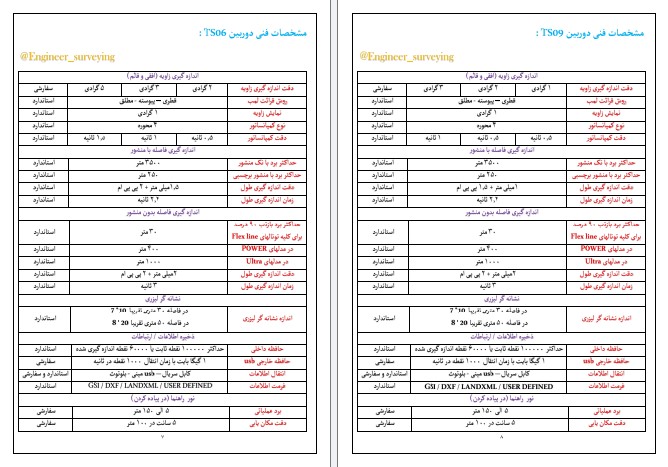 مشخصات فنی دوربین TS06 :
@Engineer_surveying
اندازه گیری زاویه (افقی و قائم)
دقت اندازه گیری زاویه ۲ گرادی ۳ گرادی ۵ گرادی سفارشی
روش قرائت لمب قطری – پیوسته - مطلق استاندارد
نمایش زاویه ۱ گرادی استاندارد
نوع کمپانساتور ۴ محوره استاندارد
دقت کمپانساتور ۰٫۵ ثانیه ۱ ثانیه ۱٫۵ ثانیه استاندارد
اندازه گیری فاصله با منشور
حداکثر برد با تک منشور ۳۵۰۰ متر استاندارد
حداکثر برد با منشور برچسبی ۲۵۰ متر استاندارد
دقت اندازه گیری طول ۱٫۵میلی متر + ۲ پی پی ام استاندارد
زمان اندازه گیری طول ۲٫۴ ثانیه استاندارد
اندازه گیری فاصله بدون منشور
حداکثر برد بازتاب ۹۰ درصد
برای کلیه توتالهای Flex line ۳۰ متر استاندارد
در مدلهای POWER ۴۰۰ متر استاندارد
در مدلهای Ultra ۱۰۰۰ متر استاندارد
دقت اندازه گیری طول ۲میلی متر + ۲ پی پی ام استاندارد
زمان اندازه گیری طول ۳ ثانیه استاندارد
نشانه گر لیزری
در فاصله ۳۰ متری تقریبا 10 * 7
اندازه نشانه گر لیزری استاندارد
در فاصله ۵۰ متری تقریبا 20 * 8
ذخیره اطلاعات / ارتباطات
حافظه داخلی حداکثر ۱۰۰۰۰۰ نقطه ثابت یا ۶۰۰۰۰ نقطه اندازه گیری شده استاندارد
حافظه خارجی usb ۱ گیگا بایت با زمان انتقال ۱۰۰۰ نقطه در ثانیه سفارشی
انتقال اطلاعات کابل سریال – usb مینی - بلوتوث استاندارد و سفارشی
فرمت اطلاعات GSI / DXF / LANDXML / USER DEFINED استاندارد
نور راهنما (در پیاده کردن)
برد عملیاتی ۵ الی ۱۵۰ متر سفارشی
دقت مکان یابی ۵ سانت در ۱۰۰ متر سفارشی
۷
مشخصات فنی دوربین TS09 :
@Engineer_surveying
اندازه گیری زاویه (افقی و قائم)
دقت اندازه گیری زاویه ۱ گرادی ۲ گرادی ۳ گرادی سفارشی
روش قرائت لمب قطری – پیوسته - مطلق استاندارد
نمایش زاویه ۱ گرادی استاندارد
نوع کمپانساتور ۴ محوره استاندارد
دقت کمپانساتور ۰٫۵ ثانیه ۰٫۵ ثانیه ۱ ثانیه استاندارد
اندازه گیری فاصله با منشور
حداکثر برد با تک منشور ۳۵۰۰ متر استاندارد
حداکثر برد با منشور برچسبی ۲۵۰ متر استاندارد
دقت اندازه گیری طول ۱میلی متر + ۱٫۵ پی پی ام استاندارد
زمان اندازه گیری طول ۲٫۴ ثانیه استاندارد
اندازه گیری فاصله بدون منشور
حداکثر برد بازتاب ۹۰ درصد
برای کلیه توتالهای Flex line ۳۰ متر استاندارد
در مدلهای POWER ۴۰۰ متر استاندارد
در مدلهای Ultra ۱۰۰۰ متر استاندارد
دقت اندازه گیری طول ۲میلی متر + ۲ پی پی ام استاندارد
زمان اندازه گیری طول ۳ ثانیه استاندارد
نشانه گر لیزری
در فاصله ۳۰ متری تقریبا 10 * 7
اندازه نشانه گر لیزری استاندارد
در فاصله ۵۰ متری تقریبا 20 * 8
ذخیره اطلاعات / ارتباطات
حافظه داخلی حداکثر ۱۰۰۰۰۰ نقطه ثابت یا ۶۰۰۰۰ نقطه اندازه گیری شده استاندارد
حافظه خارجی usb ۱ گیگا بایت با زمان انتقال ۱۰۰۰ نقطه در ثانیه سفارشی
انتقال اطلاعات کابل سریال – usb مینی - بلوتوث استاندارد و سفارشی
فرمت اطلاعات GSI / DXF / LANDXML / USER DEFINED استاندارد
نور راهنما (در پیاده کردن)
برد عملیاتی ۵ الی ۱۵۰ متر سفارشی
دقت مکان یابی ۵ سانت در ۱۰۰ متر سفارشی
۸